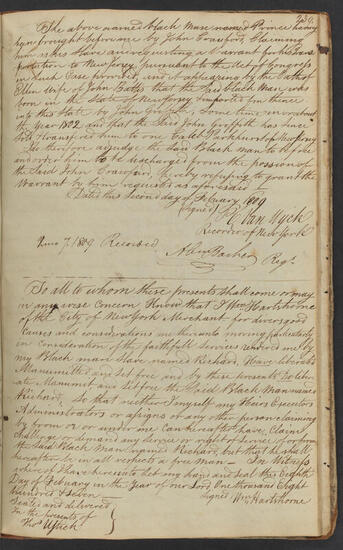 239.
The above named black Man named Prince having
been brought before me by John Crawford Claiming
him as his Slave and requesting a Warrant for his Trans
portation to New Jersey, pursuant to the Act of Congress
in such Case provided, and it appearing by the Oath of
Ellen wife of John Bates that the said black Man was
born in the State of New Jersey Imported from thence
into this State by John Griffith, Some time in or about
the Year 1802 and that the Said John Griffith has since
Sold & transferred him to one Parkhurst of New Jersey
I do therefore adjudge the Said Black man to be free
and order him to be discharged from the possession of
the Said John Crawford, hereby refusing to grant the
Warrant by him requested as aforesaid
Dated this Second day of February 1809
Signed P. C. Van Wyck
Recorder of New York
June 7. 1809 Recorded
Abm Barker Regr.
To all to whom these presents shall come or may
in any wise Concern Know that I Wm Hartshorne
of the City of New York Merchant for divers good
Causes and considerations me thereunto moving particularly
in Consideration of the faithfull Services rendered me by
my Black man Slave named Richard, Have liberated
Manumitted and set free and by these presents Do liber
ate Manumit and Set free the Said Black Man named
Richard, So that neither I myself my Heirs Executors
Administrators or assigns or any other person claiming
by from or under me Can hereafter have, Claim
challenge or demand any Service or right of Service of or from
the Said Black Man named Richard, but that he shall
hereafter be in all respects a free man — In Witness
whereof I have hereunto Set my hand and Seal this Eighth
Day of February in the Year of our Lord One thousand Eight
hundred & Seven
Signed Wm Hartshorne
Sealed and delivered
In the presents of
Thos Ustick